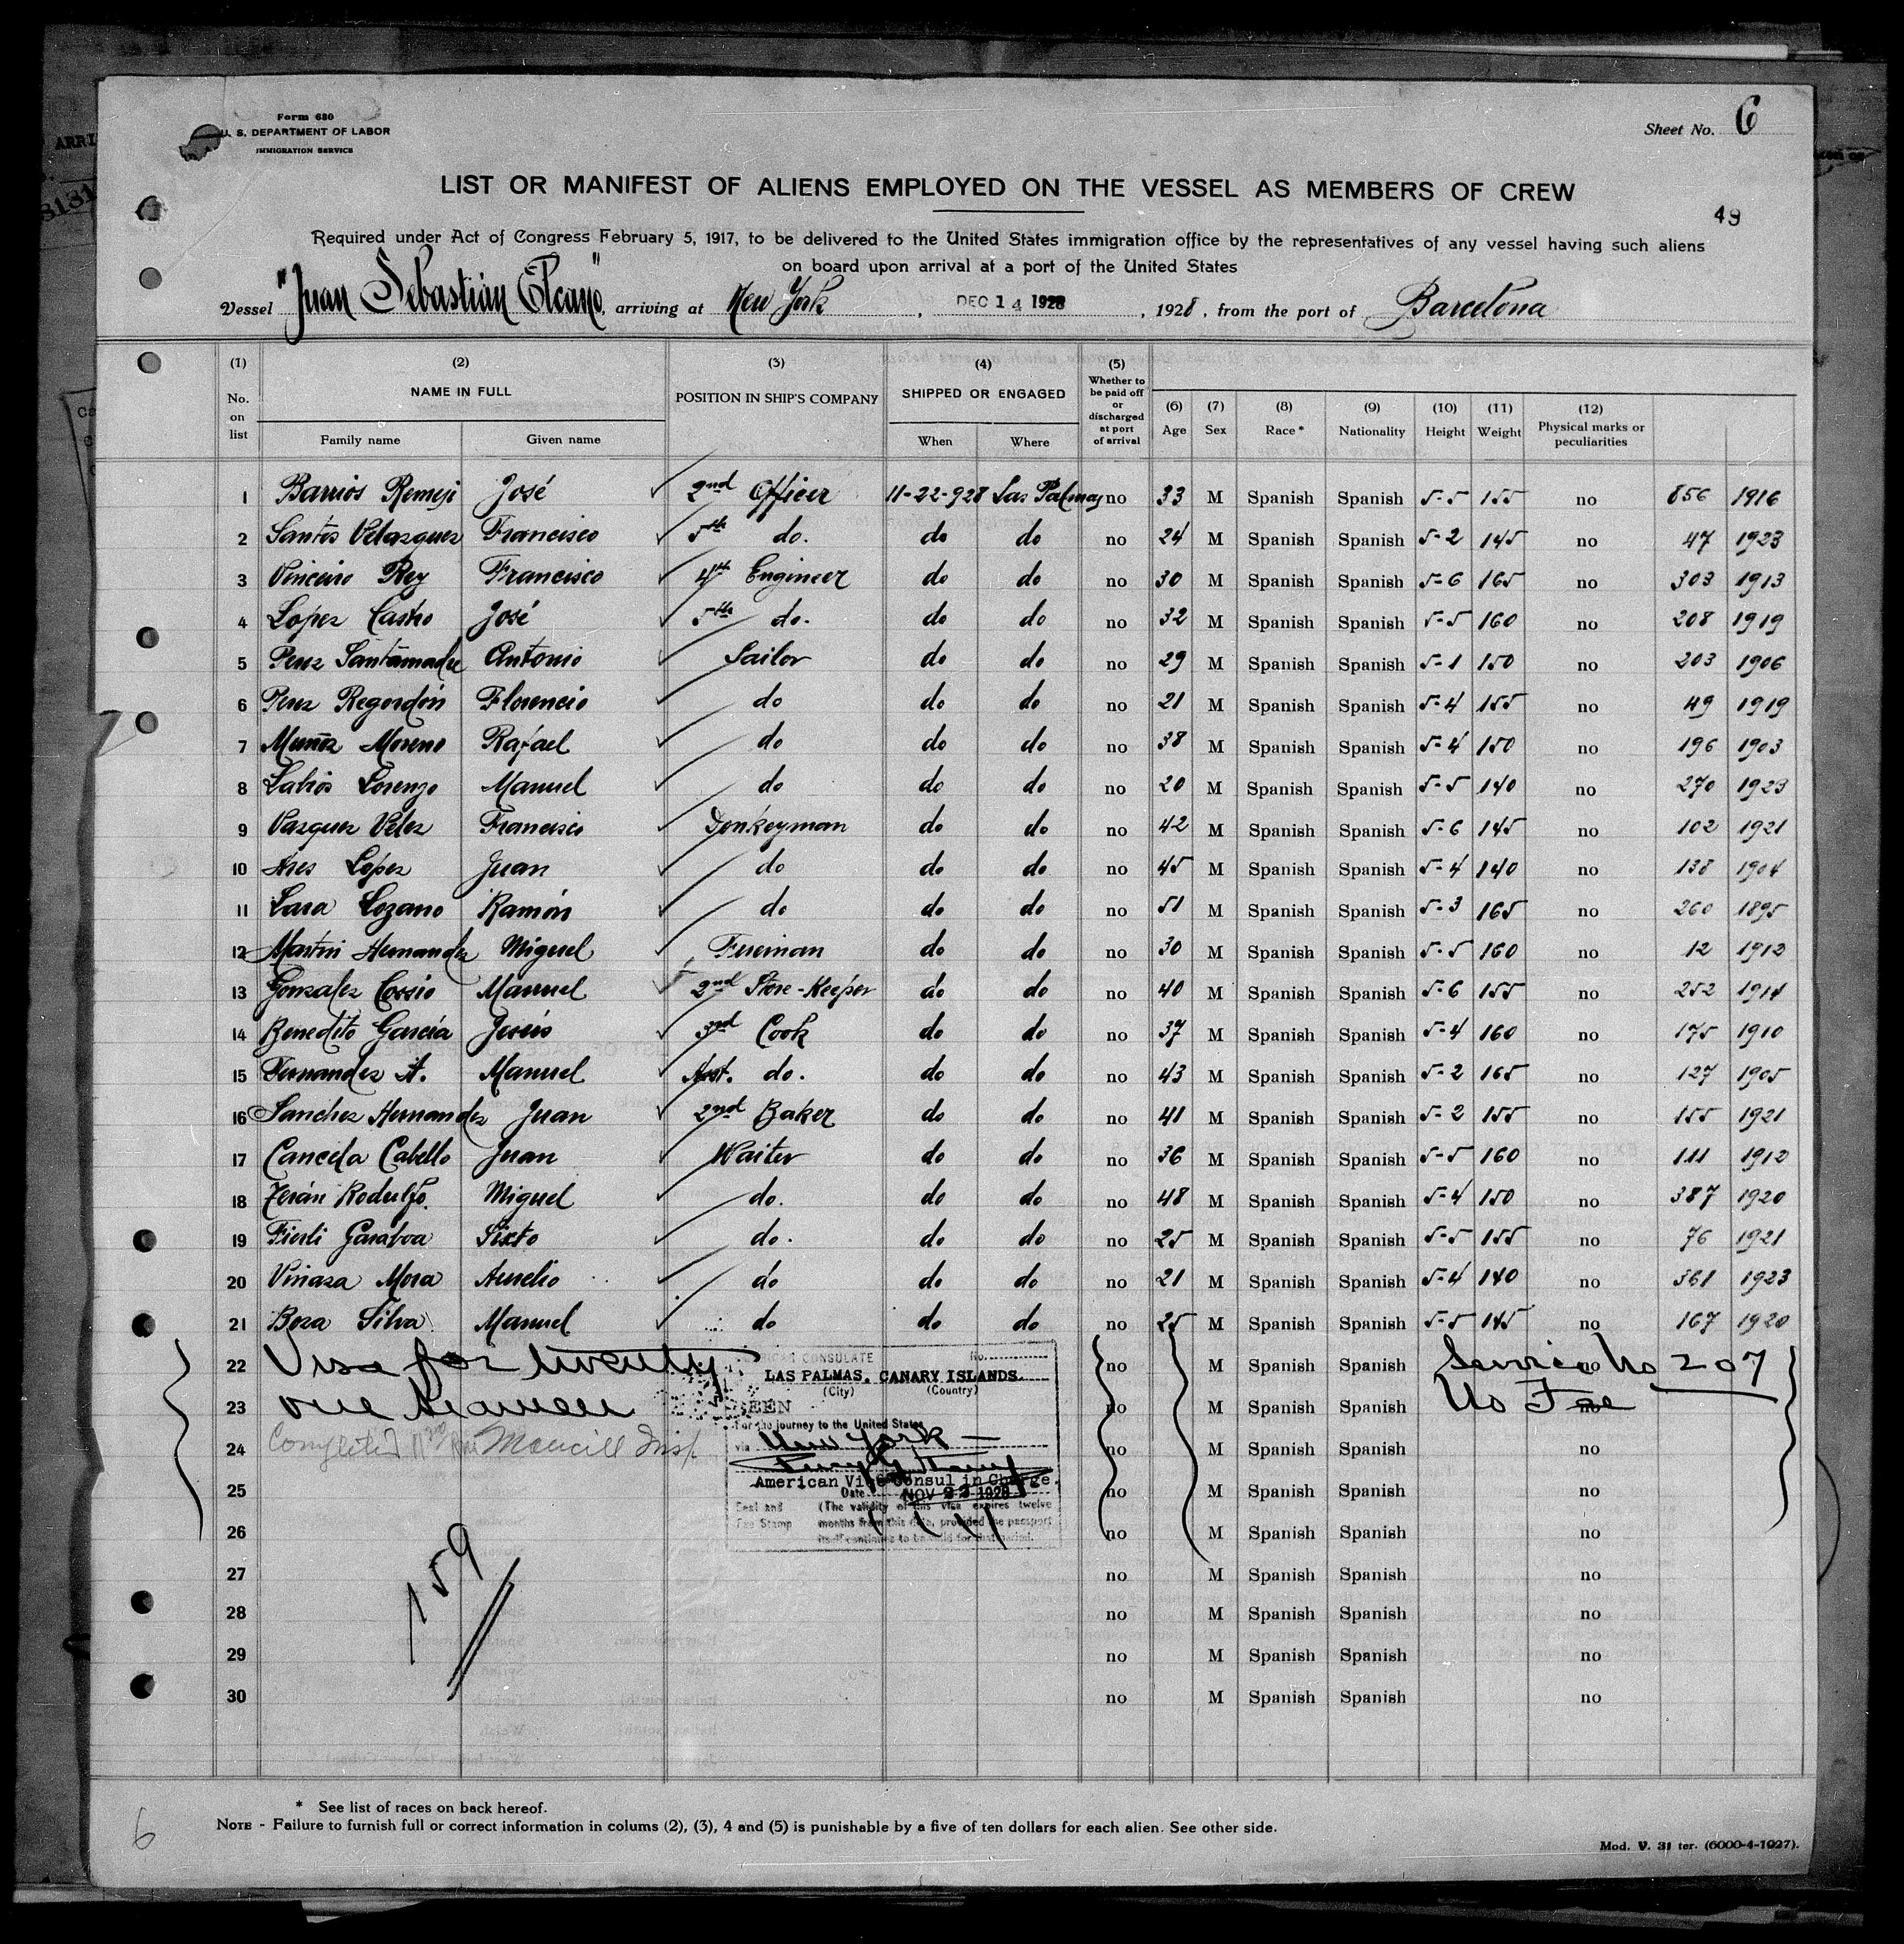 Form 630
U. S. DEPARTMENT OF LABOR
IMMIGRATION SERVICE
Sheet No. 6
LIST OR MANIFEST OF ALIENS EMPLOYED ON THE VESSEL AS MEMBERS OF CREW
49
Required under Act of Congress February 5, 1917, to be delivered to the United States immigration office by the representatives of any vessel having such aliens
on board upon arrival at a port of the United States
Vessel "Juan Sebastián Elcano", arriving at New York, DEC 14 1928, 1928, from the port of Barcelona
(1) (2) (3) (4) (5) Whether to be paid off or discharged at port of arrival
No. on list NAME IN FULL POSITION IN SHIP'S COMPANY SHIPPED OR ENGAGED (6) Age (7) Sex (8) Race * (9) Nationality (10) Height (11) Weight (12) Physical marks or peculiarities
Family name Given name When Where
1 Barrios Remeji José 2nd Officer 11-22-928 Las Palmas no 33 M Spanish Spanish 5-5 155 no 856 1916
2 Santos Velazquez Francisco 5th do. do do no 24 M Spanish Spanish 5-2 145 no 47 1923
3 Rey Francisco 4th Engineer do do no 30 M Spanish Spanish 5-6 165 no 303 1913
4 Lopez Castro José 5th do. do do no 32 M Spanish Spanish 5-5 160 no 208 1919
5 Perez Santamadre Antonio Sailor do do no 29 M Spanish Spanish 5-1 150 no 203 1906
6 Perez Regordón Florencio do do do no 21 M Spanish Spanish 5-4 155 no 49 1919
7 Muñoz Moreno Rafael do do do no 38 M Spanish Spanish 5-4 150 no 196 1903
8 Lorenzo Manuel do do do no 20 M Spanish Spanish 5-5 140 no 270 1923
9 Vazquez Velez Francisco Donkeyman do do no 42 M Spanish Spanish 5-6 145 no 102 1921
10 Ares Lopez Juan do do do no 45 M Spanish Spanish 5-4 140 no 138 1904
11 Lara Lozano Ramón do do do no 51 M Spanish Spanish 5-3 165 no 260 1895
12 Martin Hernandez Miguel Fireman do do no 30 M Spanish Spanish 5-5 160 no 12 1912
13 Gonzalez Cossio Manuel 2nd Store-Keeper do do no 40 M Spanish Spanish 5-6 155 no 252 1914
14 Benedito García Jesús 3rd Cook do do no 37 M Spanish Spanish 5-4 160 no 175 1910
15 Fernandez A. Manuel Asst. do. do do no 43 M Spanish Spanish 5-2 165 no 127 1905
16 Sanchez Hernandez Juan 2nd Baker do do no 41 M Spanish Spanish 5-2 155 no 155 1921
17 Cancela Cabello Juan Waiter do do no 36 M Spanish Spanish 5-5 160 no 111 1912
18 Terán Rodulfo. Miguel do. do do no 48 M Spanish Spanish 5-4 150 no 387 1920
19 Sixto do. do do no 25 M Spanish Spanish 5-5 155 no 76 1921
20 Viñaza Mora Aurelio do do do no 21 M Spanish Spanish 5-4 140 no 361 1923
21 Boza Silva Manuel do do do no 25 M Spanish Spanish 5-5 145 no 167 1920
22 Visa for twenty no M Spanish Spanish Service No 207 no
23 one seamen no M Spanish Spanish No Fee no
24 Completed Insp no M Spanish Spanish no
25 no M Spanish Spanish no
26 no M Spanish Spanish no
27 no M Spanish Spanish no
28 no M Spanish Spanish no
29 no M Spanish Spanish no
30 no M Spanish Spanish no
AMERICAN CONSULATE No.
LAS PALMAS, CANARY ISLANDS.
(City) (Country)
SEEN
For the journey to the United States
via New York
American Vice Consul in Charge.
Date NOV 22 1928
Seal and Fee Stamp
(The validity of this visa expires twelve
months from this date, provided the passport
itself continues to be valid for that period.
159
* See list of races on back hereof.
NOTE - Failure to furnish full or correct information in colums (2), (3), 4 and (5) is punishable by a five of ten dollars for each alien. See other side.
Mod. V. 31 ter. (6000-4-1927).
6